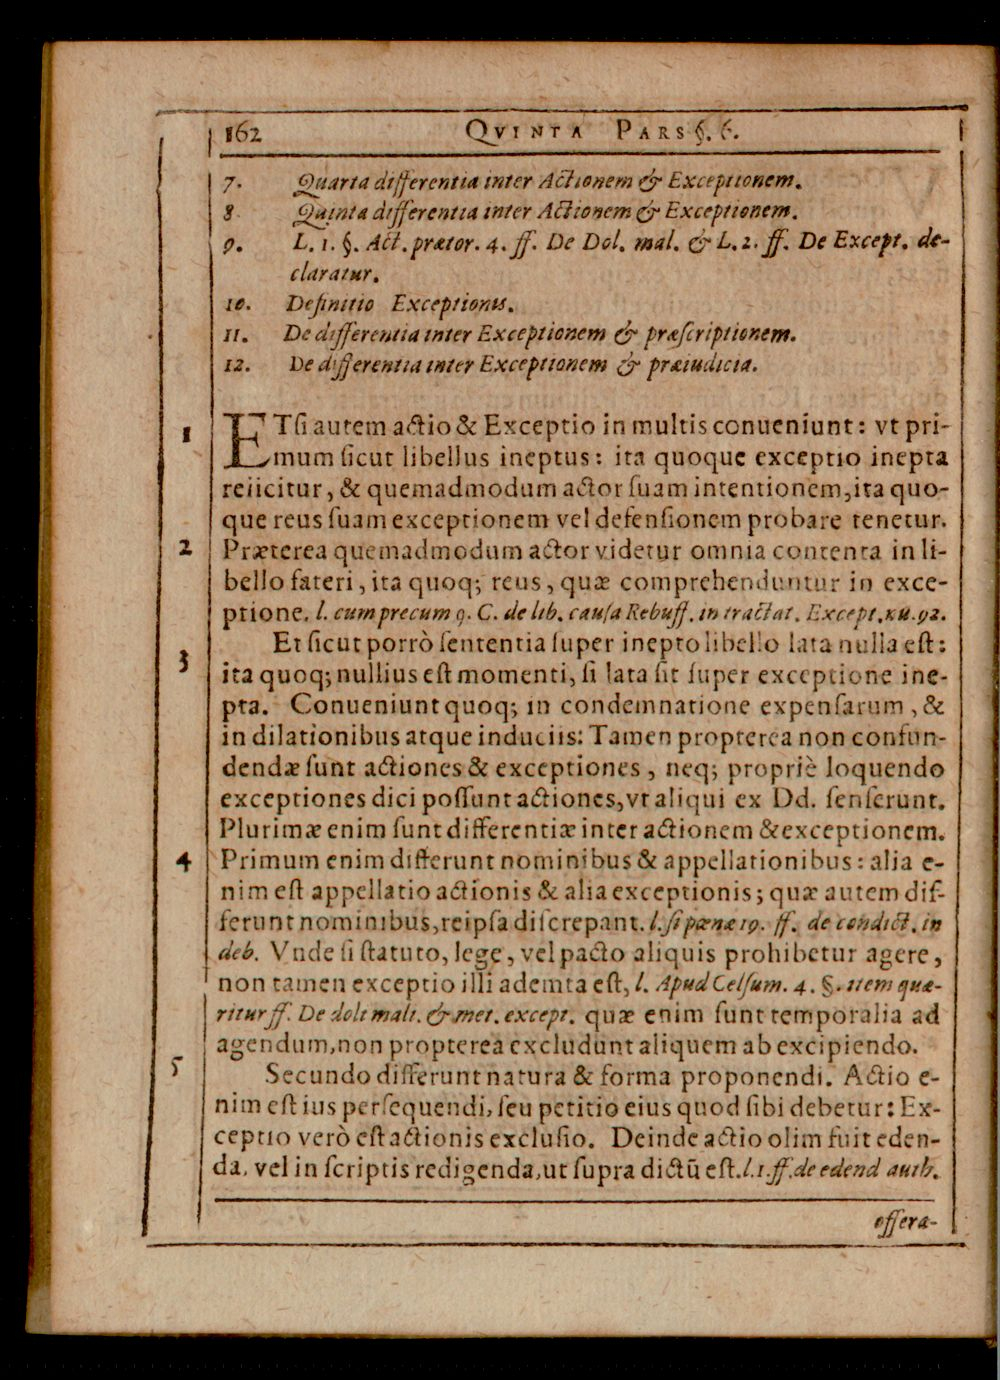 162 QVINTA PARS §. 6.
7. Quarta differentia inter Actionem & Exceptionem.
8 Quinta differentia inter Actionem & Exceptionem.
9. L. 1. §. Act. prætor. 4. ff. De Dol. mal. & L. 2. ff. De Except. de-
claratur.
10. Definitio Exceptionis.
11. De differentia inter Exceptionem & præſcriptionem.
12. De differentia inter Exceptionem & præiudicia.
1 ETſi autem actio & Exceptio in multis conueniunt: vt pri-
mum ſicut libellus ineptus: ita quoque exceptio inepta
reiicitur, & quemadmodum actor ſuam intentionem, ita quo-
que reus ſuam exceptionem vel defenſionem probare tenetur.
2 Præterea quemadmodum actor videtur omnia contenta in li-
bello fateri, ita quoq; reus, quæ comprehenduntur in exce-
ptione. l. cum precum 9. C. de lib. cauſa Rebuff. in tractat. Except. nu. 92.
3 Et ſicut porrò ſententia ſuper inepto libello lata nulla eſt:
ita quoq; nullius eſt momenti, ſi lata ſit ſuper exceptione ine-
pta. Conueniunt quoq; in condemnatione expenſarum, &
in dilationibus atque induciis: Tamen propterea non confun-
dendæ ſunt actiones & exceptiones, neq; propriè loquendo
exceptiones dici poſſunt actiones, vt aliqui ex Dd. ſenſerunt.
Plurimæ enim ſunt differentiæ inter actionem & exceptionem.
4 Primum enim differunt nominibus & appellationibus: alia e-
nim eſt appellatio actionis & alia exceptionis; quæ autem dif-
ferunt nominibus, reipſa diſcrepant. l. ſi pœnæ 19. ff. de condict. in
deb. Vnde ſi ſtatuto, lege, vel pacto aliquis prohibetur agere,
non tamen exceptio illi ademta eſt, l. Apud Celſum. 4. §. item quæ-
ritur ff. De doli mali. & met. except. quæ enim ſunt temporalia ad
agendum, non propterea excludunt aliquem ab excipiendo.
5 Secundo differunt natura & forma proponendi. Actio e-
nim eſt ius perſequendi, ſeu petitio eius quod ſibi debetur: Ex-
ceptio verò eſt actionis excluſio. Deinde actio olim fuit eden-
da, vel in ſcriptis redigenda, ut ſupra dictū eſt. l. 1. ff. de edend auth.
offera-